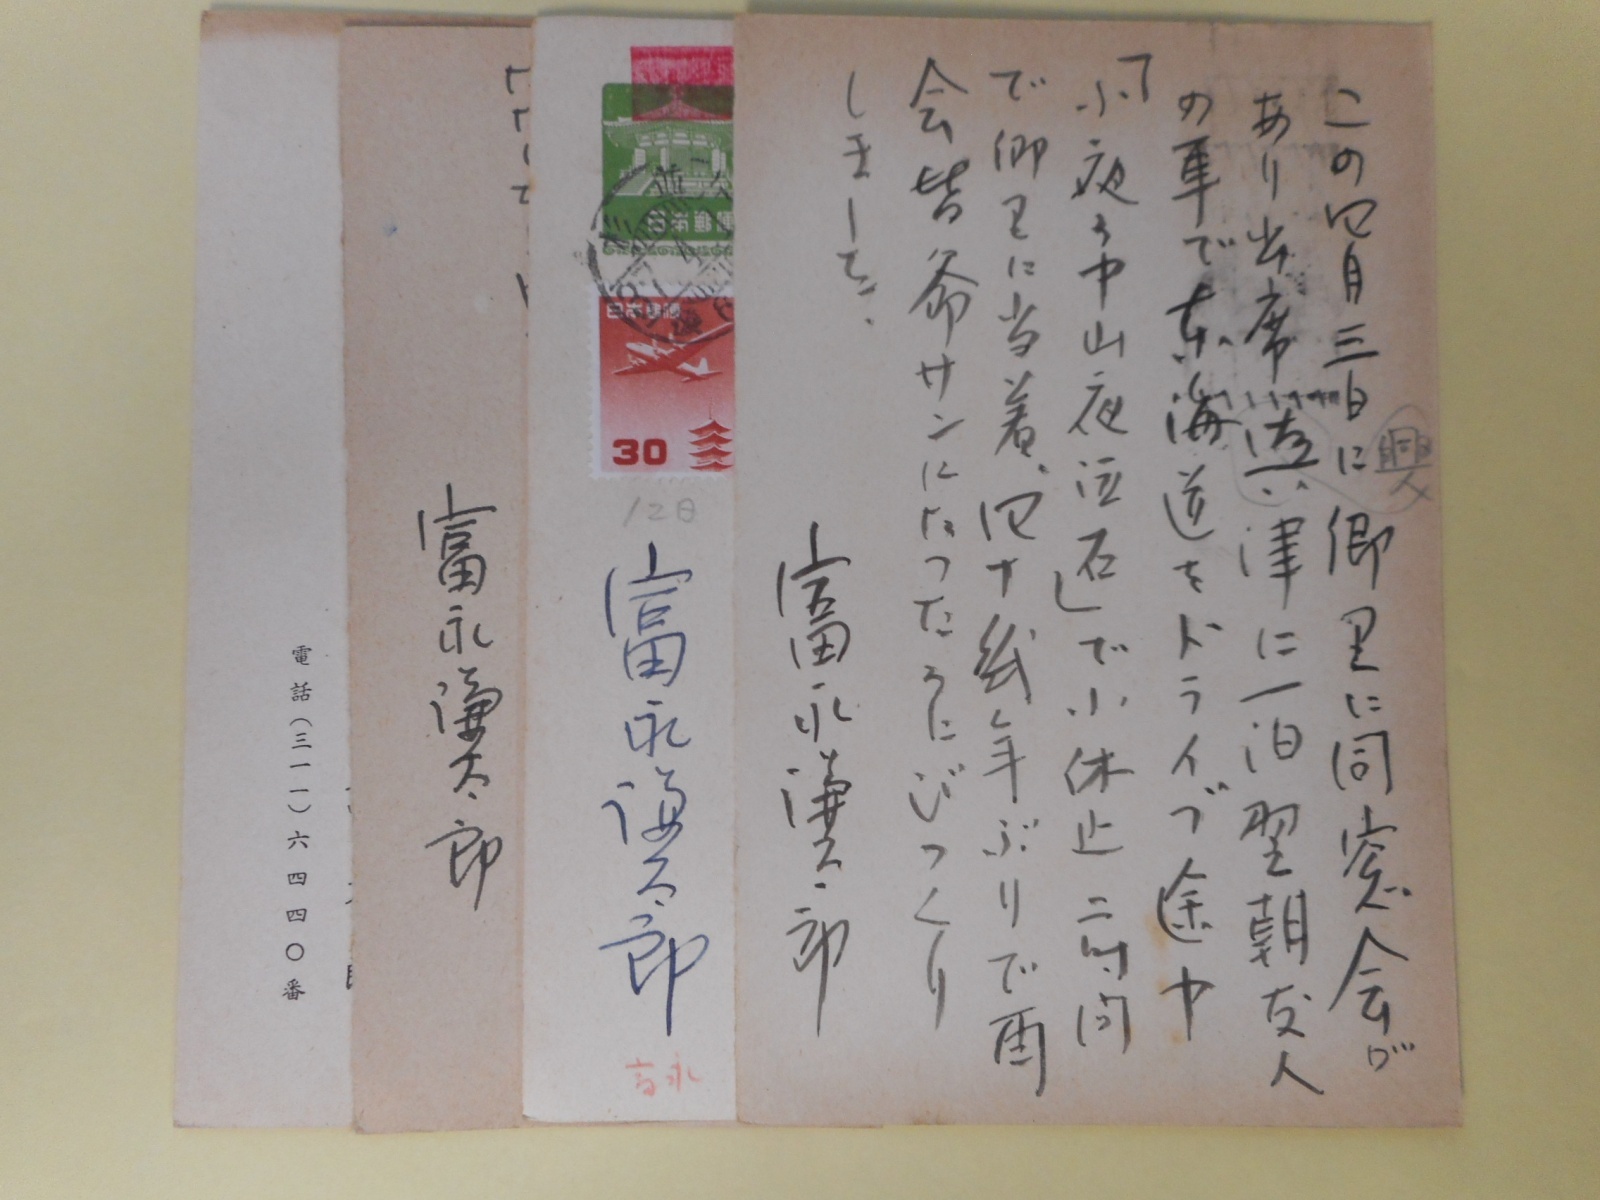 この四月三日に郷里に同窓会が
あり出席興津に一泊翌朝友人
の車で東海道をドライブ途中
「小夜の中山夜泣石」で小休止二時間
で郷里に当着、四十幾年ぶりで再
会皆爺サンになったのにびっくり
しました.
富永謙太郎
30
12日
富永謙太郎
富永
富永謙太郎
電話(三一一)六四四〇番